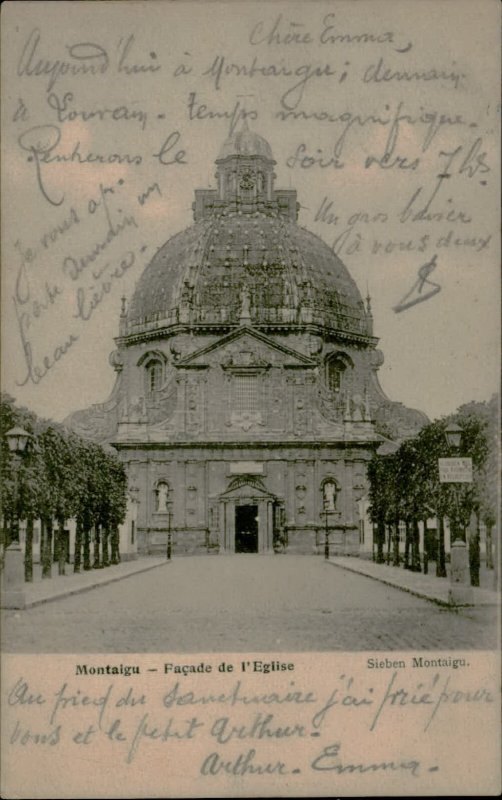 Chère Emma,
Aujourd'hui à Montaigu; demain
à Louvain. Temps magnifique.
Rentrerons le soir vers 7 hs.
Un gros baiser
à vous deux
Je vous ap
porte demain un
beau lièvre.
Montaigu – Façade de l'Eglise
Sieben Montaigu.
Au pied du Sanctuaire j'ai prié pour
vous et le petit Arthur.
Arthur. Emma.